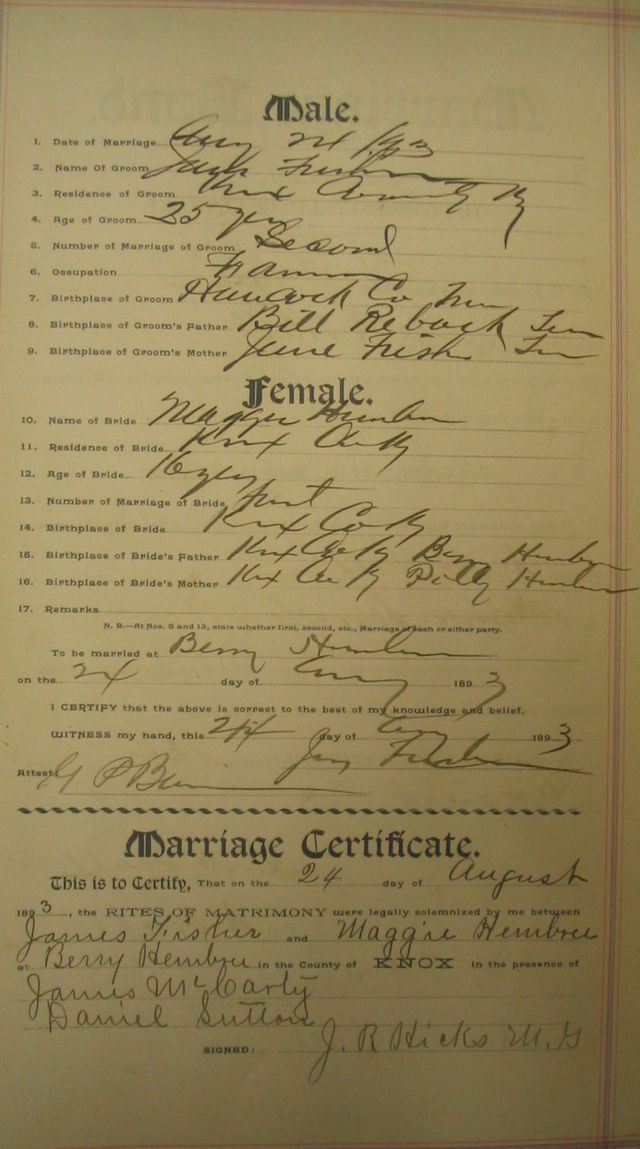 Male.
1. Date of Marriage Aug 24 1893
2. Name Of Groom Fisher
3. Residence of Groom Knox County Ky
4. Age of Groom 25 yrs
5. Number of Marriage of Groom Second
6. Occupation Farmer
7. Birthplace of Groom Hancock Co Tenn
8. Birthplace of Groom's Father Bill Reback Tenn
9. Birthplace of Groom's Mother Jane Fisher Tenn
Female.
10. Name of Bride Maggie Hembree
11. Residence of Bride Knox Co Ky
12. Age of Bride 16 yrs
13. Number of Marriage of Bride first
14. Birthplace of Bride Knox Co Ky
15. Birthplace of Bride's Father Knox Co Ky Berry Hembree
16. Birthplace of Bride's Mother Knox Co Ky Polly Hembree
17. Remarks
N. B.—At Nos. 5 and 13, state whether first, second, etc., Marriage of each or either party.
To be married at Berry Hembree
on the 24 day of Aug 1893
I CERTIFY that the above is correct to the best of my knowledge and belief.
WITNESS my hand, this 24 day of Aug 1893
Fisher
Attest:
Marriage Certificate.
This is to Certify, That on the 24 day of August
1893, the RITES OF MATRIMONY were legally solemnized by me between
James Fisher and Maggie Hembree
at Berry Hembree in the County of KNOX in the presence of
James McCarty
Daniel Sutton
SIGNED: J. R Hicks M. G